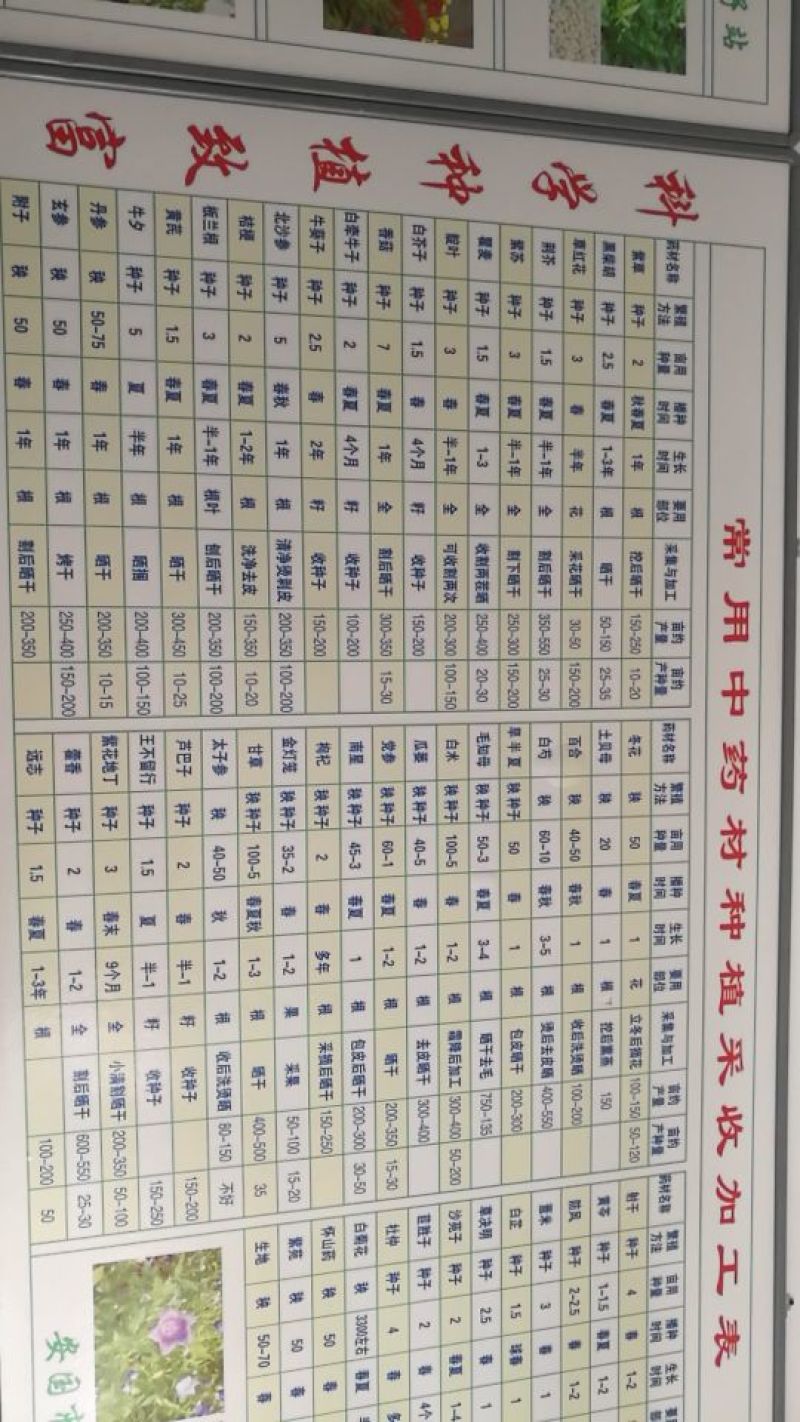 务站
科学种植致富
常用中药材种植采收加工表
药材名称 繁殖方法 亩用种量 播种时间 生长时间 要用部位 采集与加工 亩约产量 亩约产种量
紫草 种子 2 秋春夏 1年 根 挖后晒干 150-250 10-20
黑柴胡 种子 2.5 春夏 1-3年 根 晒干 50-150 25-35
草红花 种子 3 春 半年 花 采花晒干 30-50 150-200
荆芥 种子 1.5 春夏 半-1年 全 割后晒干 350-550 25-30
紫苏 种子 3 春夏 半-1年 全 割下晒干 250-300 150-200
瞿麦 种子 1.5 春夏 1-3 全 收割两茬晒 250-400 20-30
靛叶 种子 3 春 半-1年 全 可收割两次 200-300 100-150
白芥子 种子 1.5 春 4个月 籽 收种子 150-200
香菇 种子 7 春夏 1年 全 割后晒干 300-350 15-30
白牵牛子 种子 2 春夏 4个月 籽 收种子 100-200
牛蒡子 种子 2.5 春 2年 籽 收种子 150-200
北沙参 种子 5 春秋 1年 根 清净烫剥皮 200-350 100-200
桔梗 种子 2 春夏 1-2年 根 洗净去皮 150-350 10-20
板兰根 种子 3 春夏 半-1年 根叶 刨后晒干 200-350 100-200
黄芪 种子 1.5 春夏 1年 根 晒干 300-450 10-25
牛夕 种子 5 夏 半年 根 晒捆 200-400 100-150
丹参 秧 50-75 春 1年 根 晒干 200-350 10-15
玄参 秧 50 春 1年 根 烤干 250-400 150-200
附子 秧 50 春 1年 根 割后晒干 200-350
药材名称 繁殖方法 亩用种量 播种时间 生长时间 要用部位 采集与加工 亩约产量 亩约产种量
冬花 秧 50 春夏 1 花 立冬后摘花 100-150 50-120
土贝母 秧 20 春 1 根 挖后熏蒸 150
百合 秧 40-50 春秋 1 根 收后洗烫晒 100-200
白芍 秧 60-10 春秋 3-5 根 烫后去皮晒 400-550
旱半夏 秧种子 50 春 1 根 包皮晒干 200-300
毛知母 秧种子 50-3 春夏 3-4 根 晒干去毛 750-135
白术 秧种子 100-5 春 1-2 根 霜降后加工 300-400 50-200
瓜蒌 秧种子 40-5 春 1-2 根 去皮晒干 300-400
党参 秧种子 60-1 春夏 1-2 根 晒干 200-350 15-30
南星 秧种子 45-3 春夏 1 根 包皮后晒干 200-300 30-50
枸杞 秧种子 2 春 多年 根 采摘后晒干 150-250
金灯笼 秧种子 35-2 春 1-2 果 采果 50-100 15-20
甘草 秧种子 100-5 春夏秋 1-3 根 晒干 400-500 35
太子参 秧 40-50 秋 1-2 根 收后洗烫晒 80-150 不好
芦巴子 种子 2 春 半-1 籽 收种子 150-200
王不留行 种子 1.5 夏 半-1 籽 收种子 150-250
紫花地丁 种子 3 春末 9个月 全 小满割晒干 200-350 50-100
藿香 种子 2 春 1-2 全 割后晒干 600-550 25-30
远志 种子 1.5 春夏 1-3年 根 100-200 50
药材名称 繁殖方法 亩用种量 播种时间 生长时间
射干 种子 4 春 1-2
黄芩 种子 1-1.5 春夏 1-2
防风 种子 2-2.5 春 1-2
薏米 种子 3 春 1
白芷 种子 1.5 球春 1
草决明 种子 2.5 春 1
沙苑子 种子 2 春夏 1-4
苴胜子 种子 2 春 4个
杜仲 种子 4 春 多
白菊花 秧 3300左右 春夏
怀山药 秧 50 春
紫苑 秧 50 春
生地 秧 50-70 春
安国市